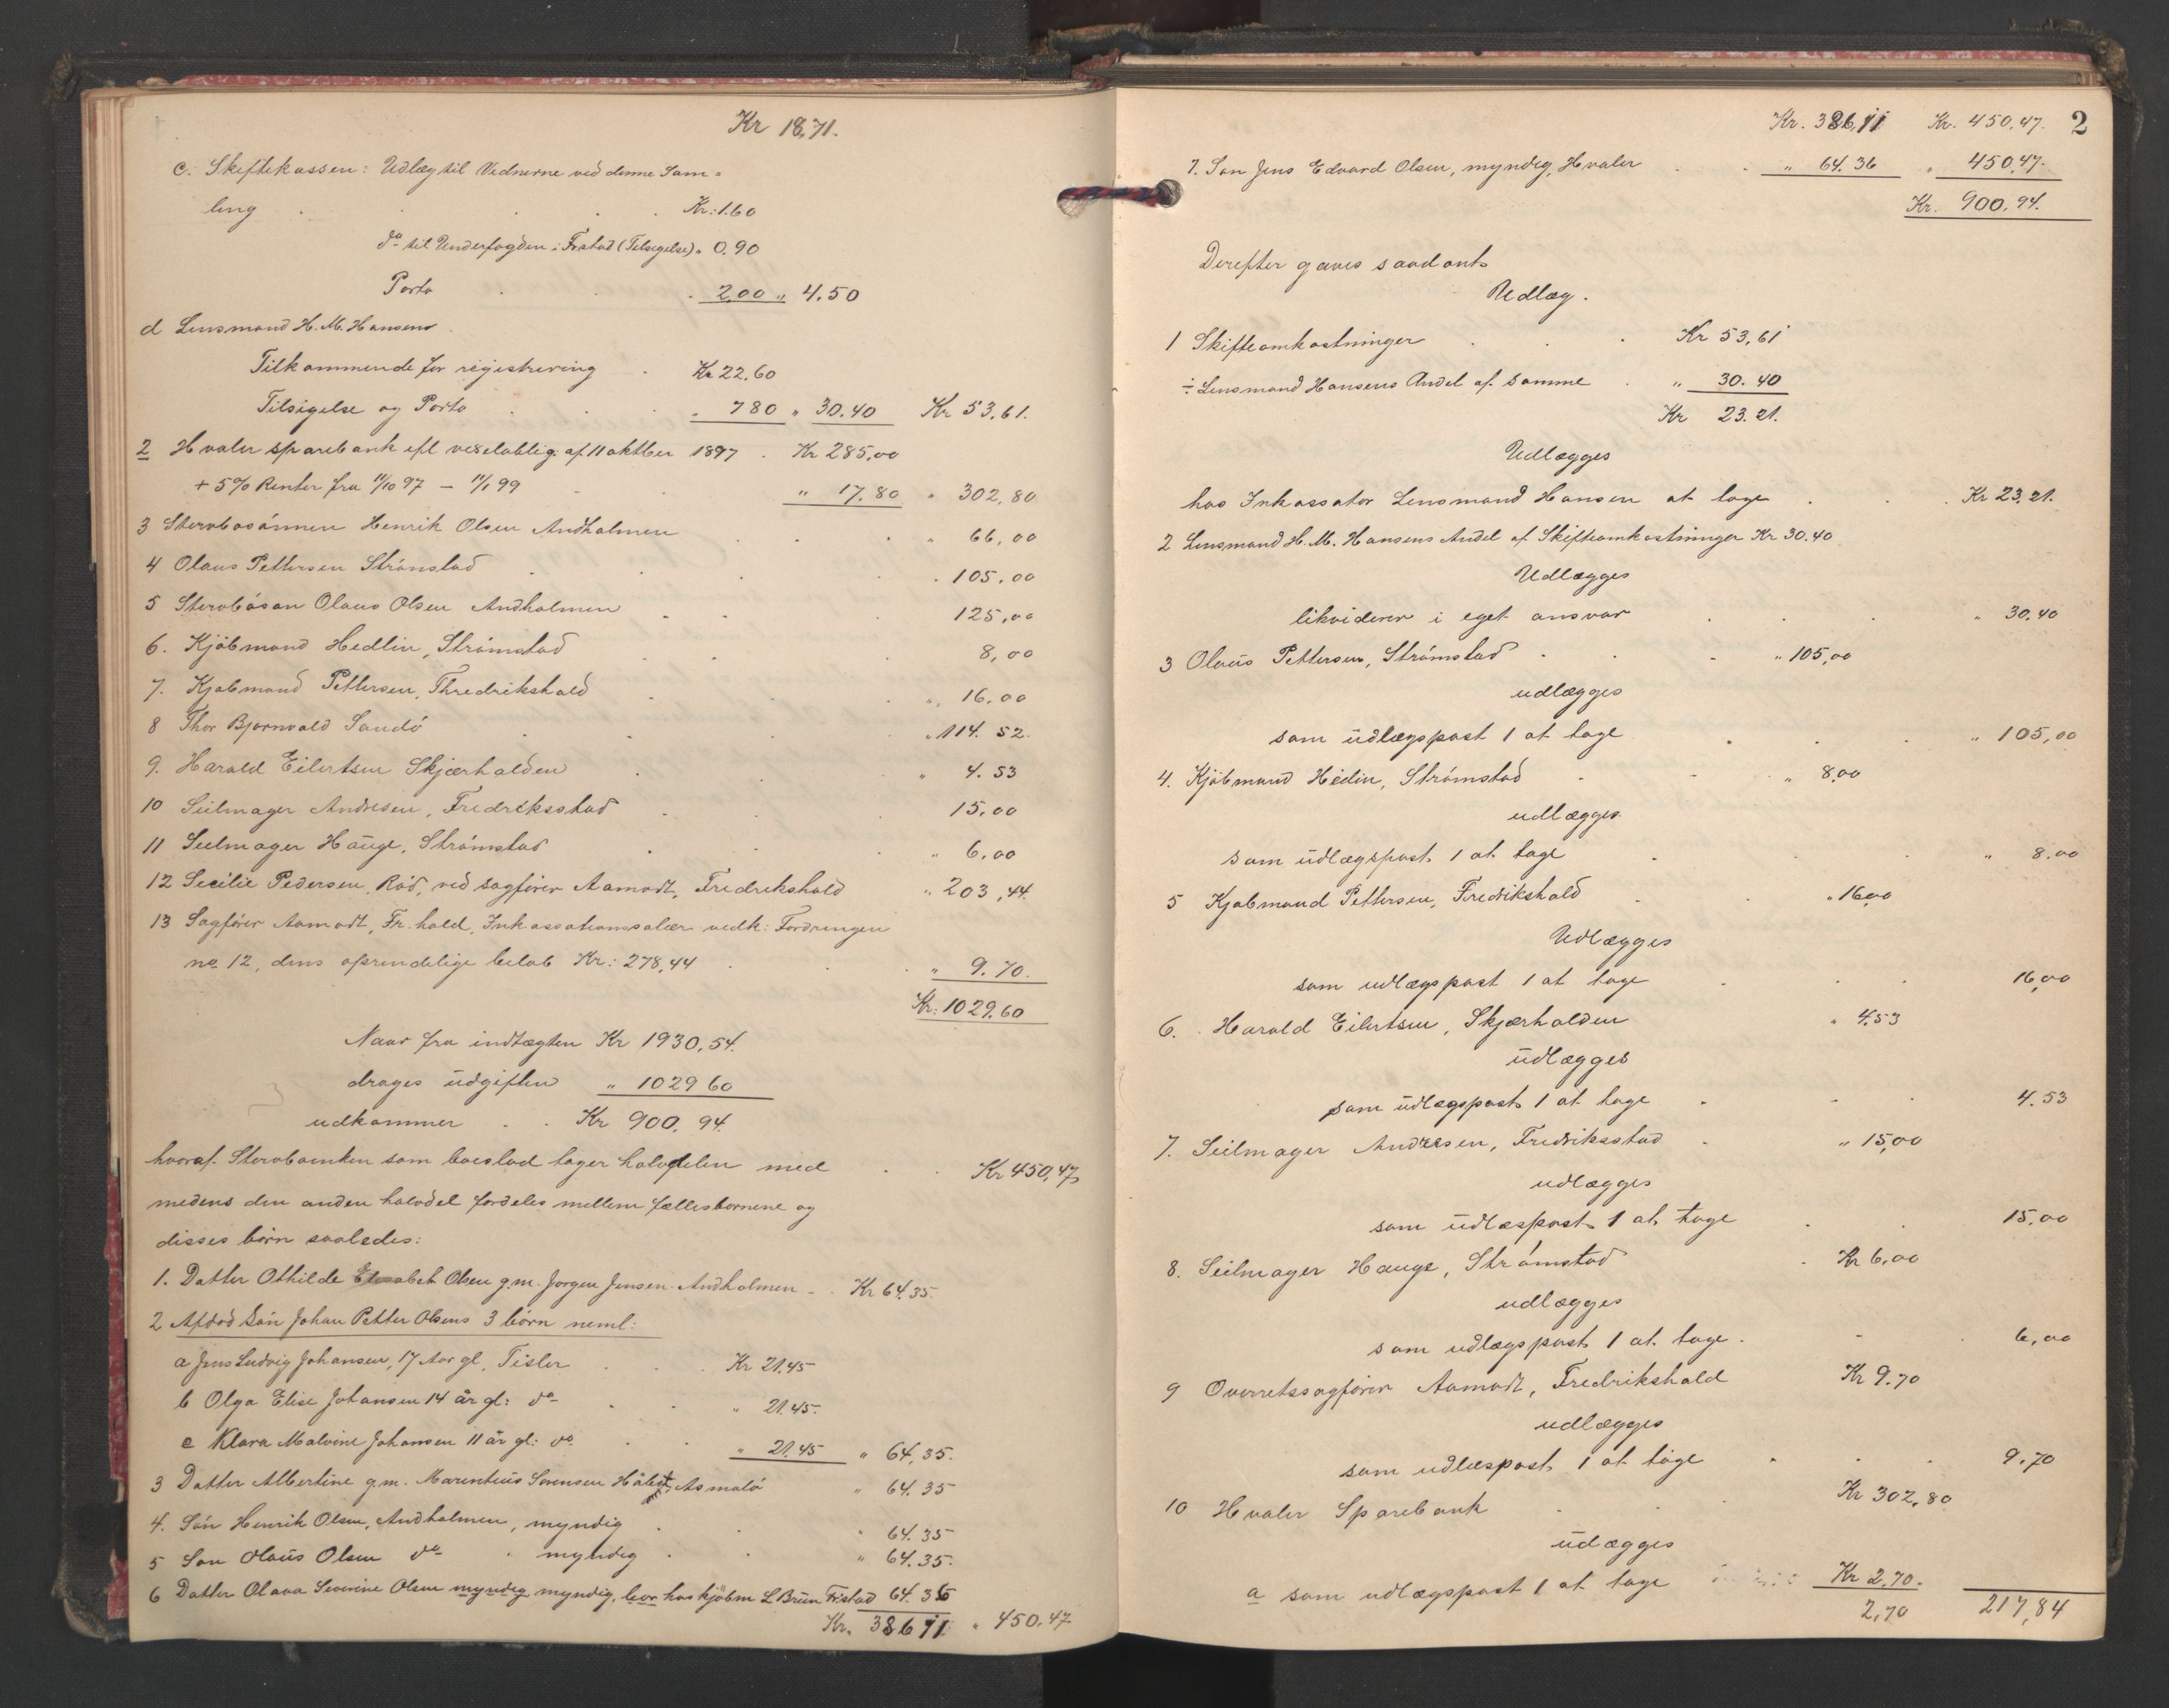 Kr 18,71.
c. Skiftekassen: Udlæg til Vidnerne ved denne Sam=
ling . . . Kr: 1.60
do til Underfogden i Frstad (Tilsigelse) " 0.90
Porto . . 2,00 " 4.50
d Lensmand H. M. Hansens
Tilkommende for registrering . Kr 22,60
Tilsigelse og Porto . . . " 780 " 30.40 Kr 53,61.
2 Hvaler sparebank efl vexeloblig: af 11 oktber 1897 . Kr 285,00
+ 5% Renter fra 11/10 97 – 11/1 99 " 17.80 " 302,80
3 Stervbosönnen Henrik Olsen Andholmen . . . " 66,00
4 Olaus Pettersen Strömstad . . . 105,00
5 Stervbösøn Olaus Olsen Andholmen . . . 125,00
6. Kjöbmand Hedlin, Strömstad . . . 8,00
7. Kjøbmand Pettersen, Fhredrikshald . . " 16.00
8 Thor Bjornvald Sandö . . " 114. 52.
9. Harald Eilertsen Skjærhalden . " 4.53
10 Seilmager Andresen, Fredriksstad . . 15,00
11 Seilmager Hauge, Strömstad . . " 6,00
12 Secilie Pedersen, Röd, ved sagförer Aamodt, Fredrikshald " 203,44.
13 Sagförer Aamodt, Fr. hald, Inkassationssalær vedk: Fordringen
no 12, dens oprindelige belöb Kr: 278,44 . . " 9.70.
Kr: 1029,60
Naar fra indtægten Kr 1930,54.
drages udgiften " 1029 60
udkommer . . Kr 900. 94.
hvoraf Stervboenken som boeslod tager halvdelen med . . Kr 450,47
medens den anden halvdel fordeles mellem fællesbornene og
disses börn saaledes:
1. Datter Othilde Elisabet Olsen g.m. Jorgen Jensen Andholmen - . Kr 64.35.
2 Afdöd Sön Johan Petter Olsens 3 börn neml:
a Jens Ludvig Johansen, 17 Aar gl, Tisler . . Kr 21.45
b Olga Elise Johansen 14 år gl: do . . " 21.45.
c Klara Malvine Johansen 11 år gl: do . . " 21.45 " 64,35.
3 Datter Albertine g.m. Marentius Sörensen Asmalö " 64.35
4. Sön Henrik Olsen, Andholmen, myndig . . " 64.35
5 Søn Olaus Olsen do . myndig . . " 64.35.
6 Datter Olava Severine Olsen myndig myndig, bor hos kjöbm L Bruun Frstad 64.36
Kr. 386,11 " 450.47
Kr. 386,11 Kr. 450,47. 2
7. Søn Jens Edvard Olsen, myndig, Hvaler . . " 64.36 " 450,47.
Kr. 900,94.
Derefter gaves saadant
Udlæg.
1 Skifteomkostninger . . . Kr 53,61
÷ Lensmand Hansens Andel af samme . " 30.40
Kr 23.21.
Udlægges
hos Inkassator Lensmand Hansen at tage . . . Kr 23,21.
2 Lensmand H. M. Hansens Andel af Skifteomkostninger Kr 30.40
Udlægges
likviderer i eget ansvar . . . " 30,40
3 Olaus Pettersen, Strömstad . . . " 105,00
udlægges
som udlægspost 1 at tage . . . " 105,00
4. Kjöbmand Hedin, Strömstad . . " 8,00
udlægges
som udlægspost 1 at tage . . " 8,00
5 Kjøbmand Pettersen, Fredrikshald . . " 16,00
Udlægges
som udlægspost 1 at tage . . . 16,00
6. Harald Eilertsen, Skjærhalden " 4,53
udlægges
som udlægspost 1 at tage . . . 4.53
7. Seilmager Andresen, Fredriksstad . " 15,00
udlægges
som udlæspost 1 at tage . . 15,00
8. Seilmager Hauge, Strömstad . Kr 6,00
udlægges
som udlægspost 1 at tage . - . 6,00
9 Overretssagförer Aamodt, Fredrikshald Kr 9.70
udlægges
som udlæspost 1 at tage . . . 9.70
10 Hvaler Sparebank . . . Kr 302,80
udlægges
a som udlægspost 1 at tage Kr 2,70.
2,70 217,84